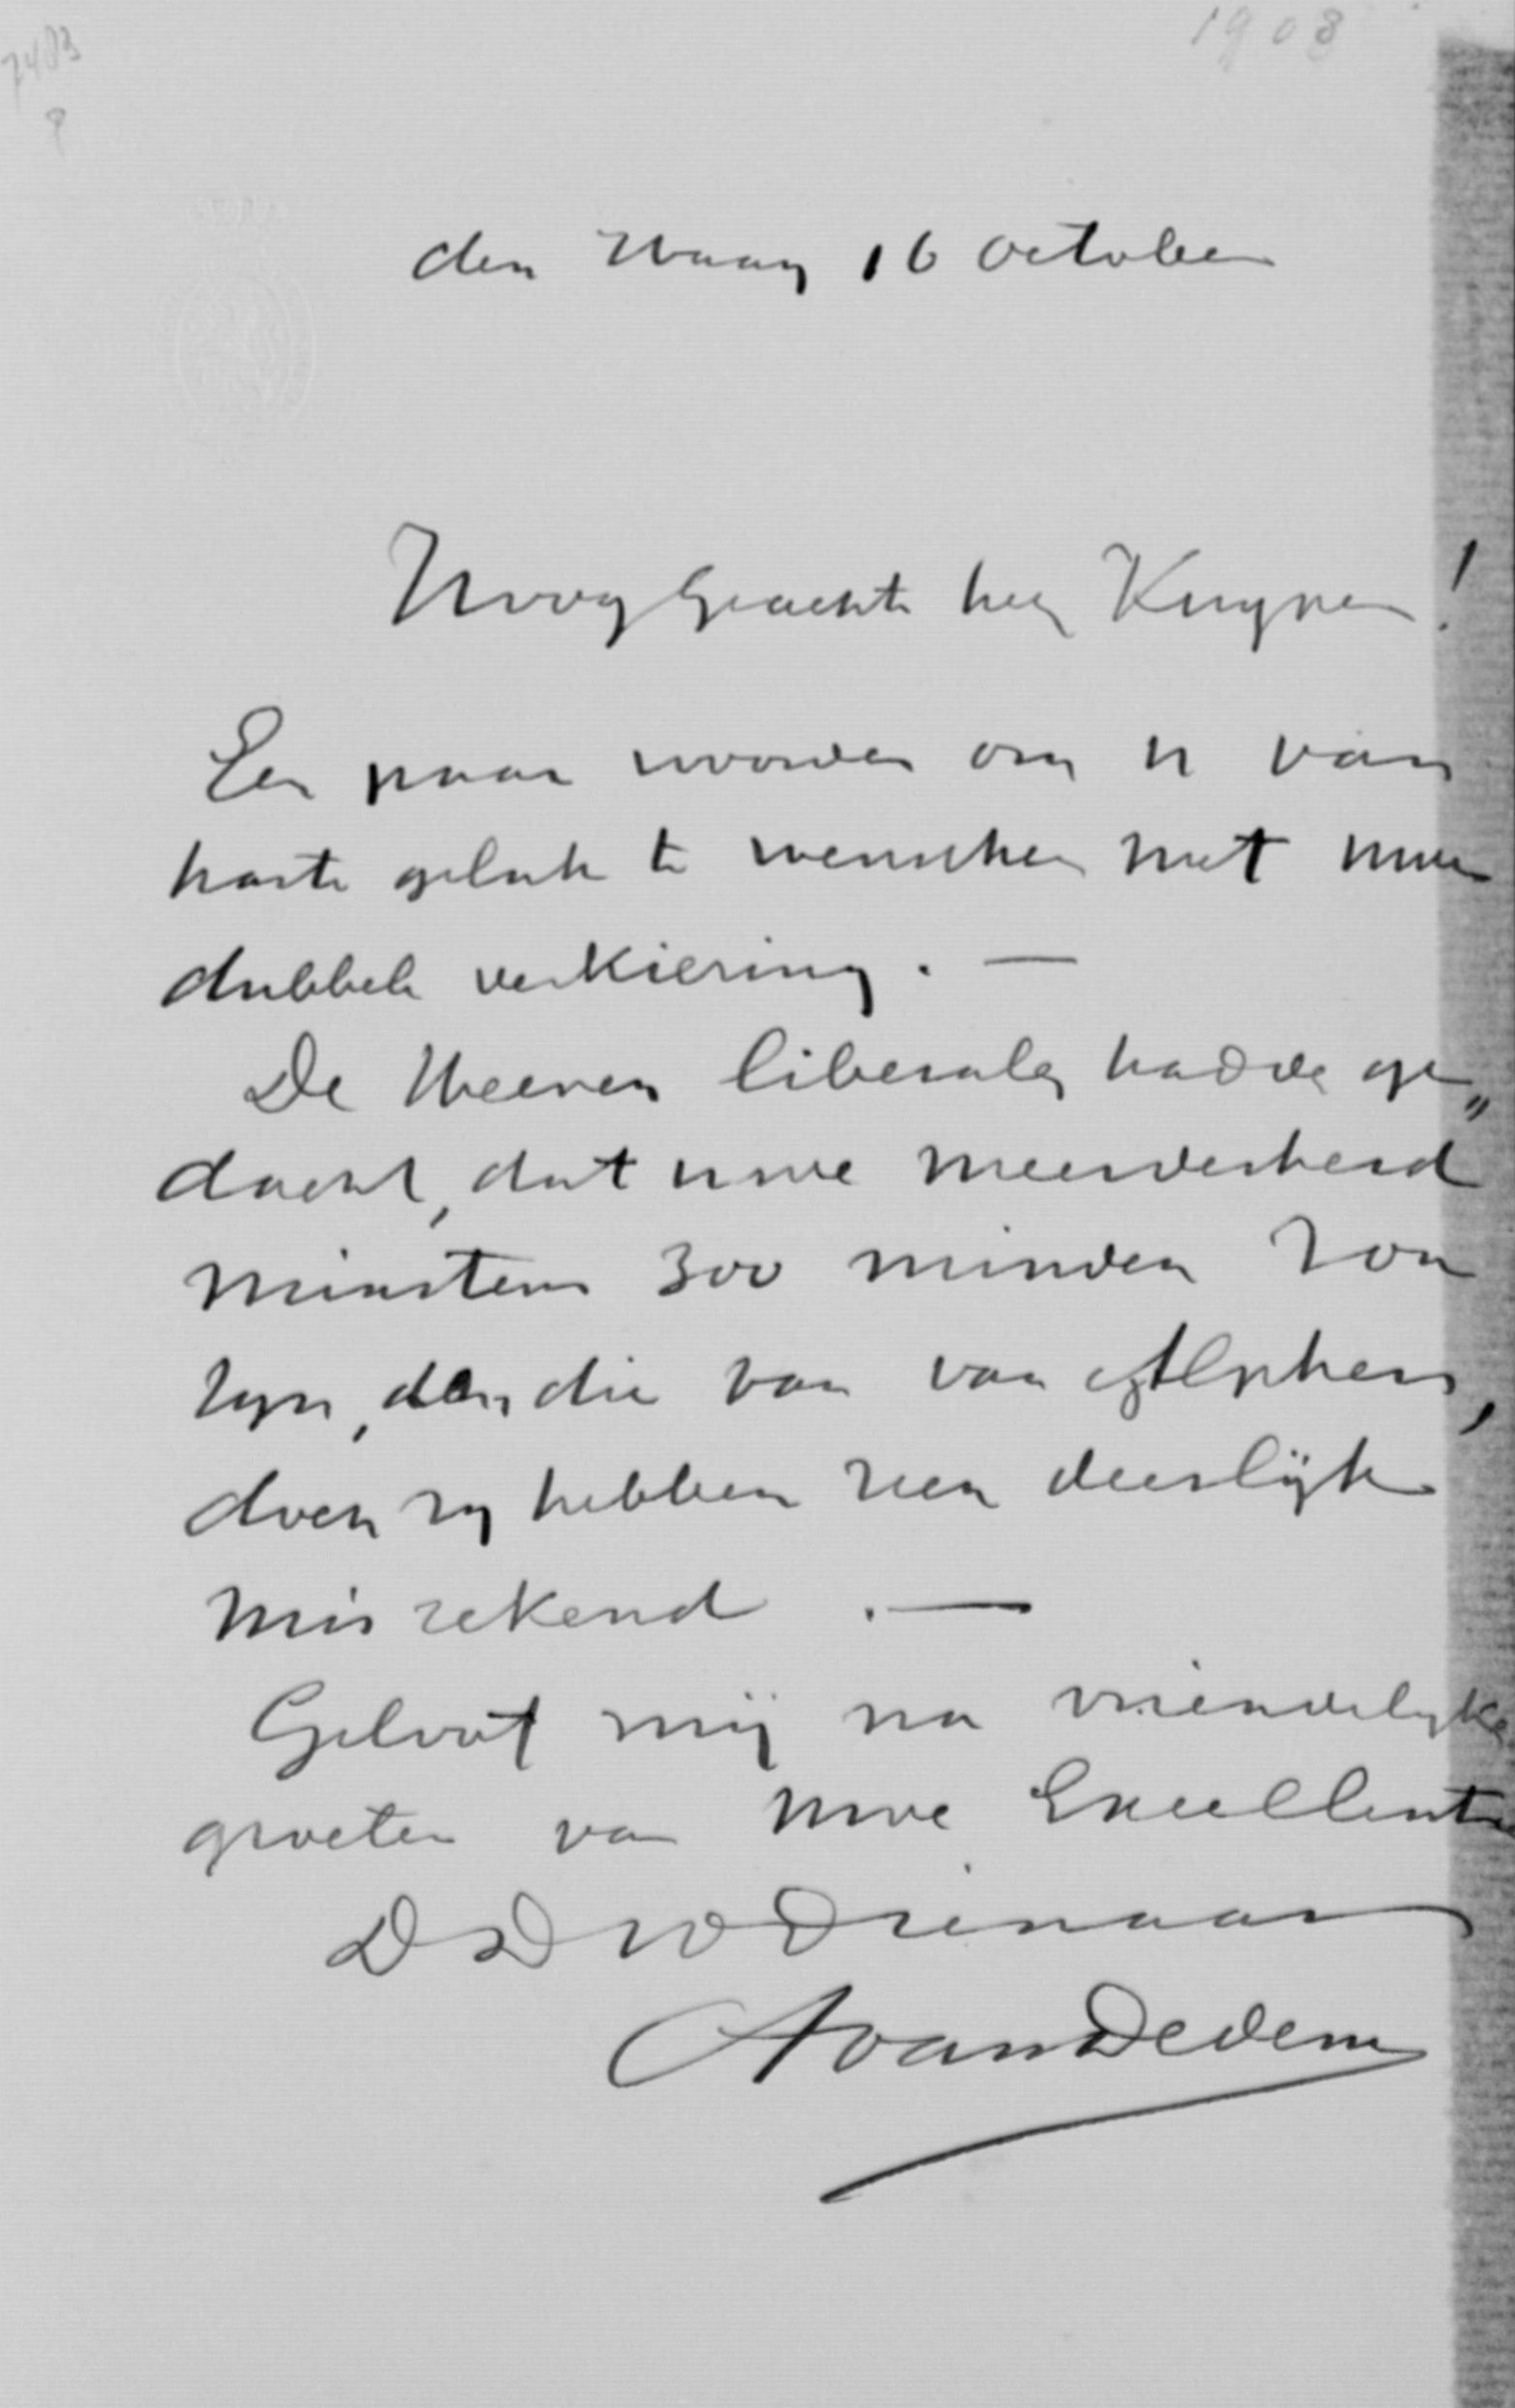 1908
7483
den Haag 16 October
Hoog Geachte heer Kuyper!
Een paar woorden om U van
harte geluk te wenschen met uwe
dubbele verkiezing. —
De Heeren liberalen hadden ge„
dacht, dat uwe meerderheid
minstens 300 minder zou
zyn, dan die van van Alphen,
doch zy hebben zich deerlijk
misrekend . —
Geloof mij na vriendelyke
groeten van Uwe Excellentie
D D W Dienaar
A van Dedem